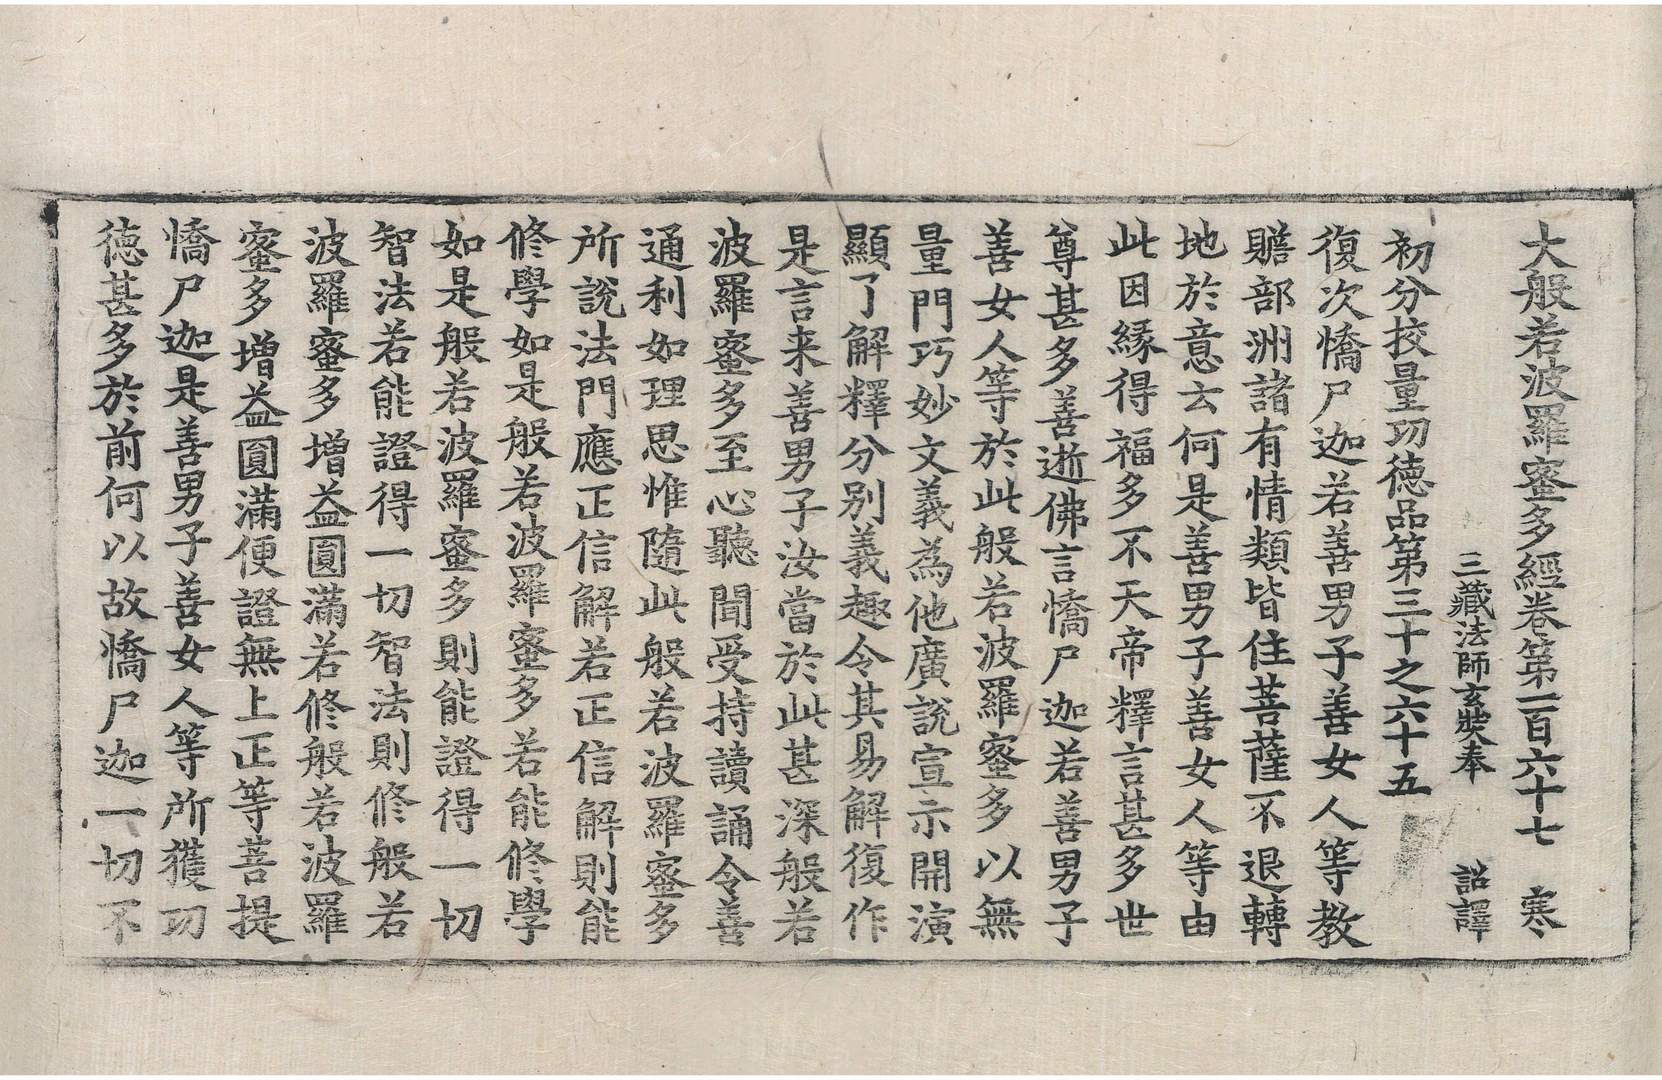 大般若波羅蜜多經卷第一百六十七　寒
三藏法師玄奘奉　詔譯
初分挍量功德品第三十之六十五
復次憍尸迦若善男子善女人等教
贍部洲諸有情類皆住菩薩不退轉
地於意云何是善男子善女人等由
此因緣得福多不天帝釋言甚多世
尊甚多善逝佛言憍尸迦若善男子
善女人等於此般若波羅蜜多以無
量門巧妙文義為他廣說宣示開演
顯了解釋分別義趣令其易解復作
是言来善男子汝當於此甚深般若
波羅蜜多至心聽聞受持讀誦令善
通利如理思惟隨此般若波羅蜜多
所說法門應正信解若正信解則能
修學如是般若波羅蜜多若能修學
如是般若波羅蜜多則能證得一切
智法若能證得一切智法則修般若
波羅蜜多增益圓滿若修般若波羅
蜜多增益圓滿便證無上正等菩提
憍尸迦是善男子善女人等所獲功
德甚多於前何以故憍尸迦一切不